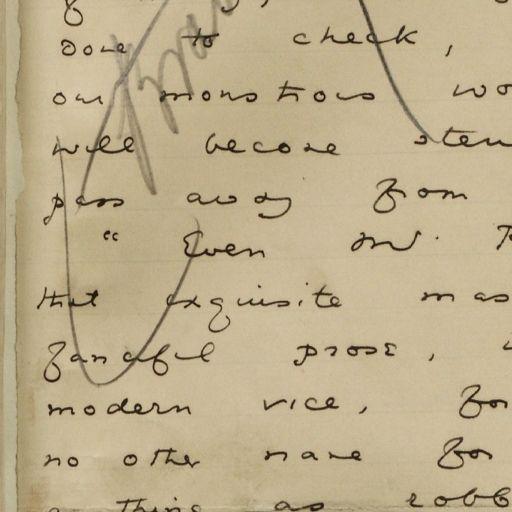 done to check,
our monstrous wo
will become ster
pass away from
" Even Mr. R
that exquisite mas
fanciful prose,
modern vice, for
no other name for
a thing as robb